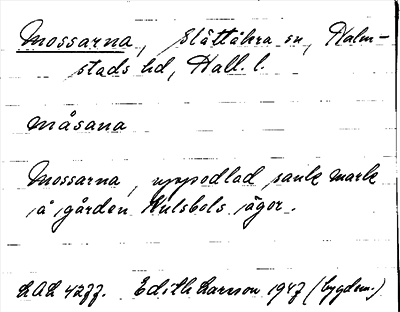 Mossarna, Slättåkra sn, Halm-
stads hd, Hall. l.
måsana
Mossarna, uppodlad sank mark
å gården Hulsbols ägor.
LAL 4277. Edith Larsson 1947 (bygdem.)